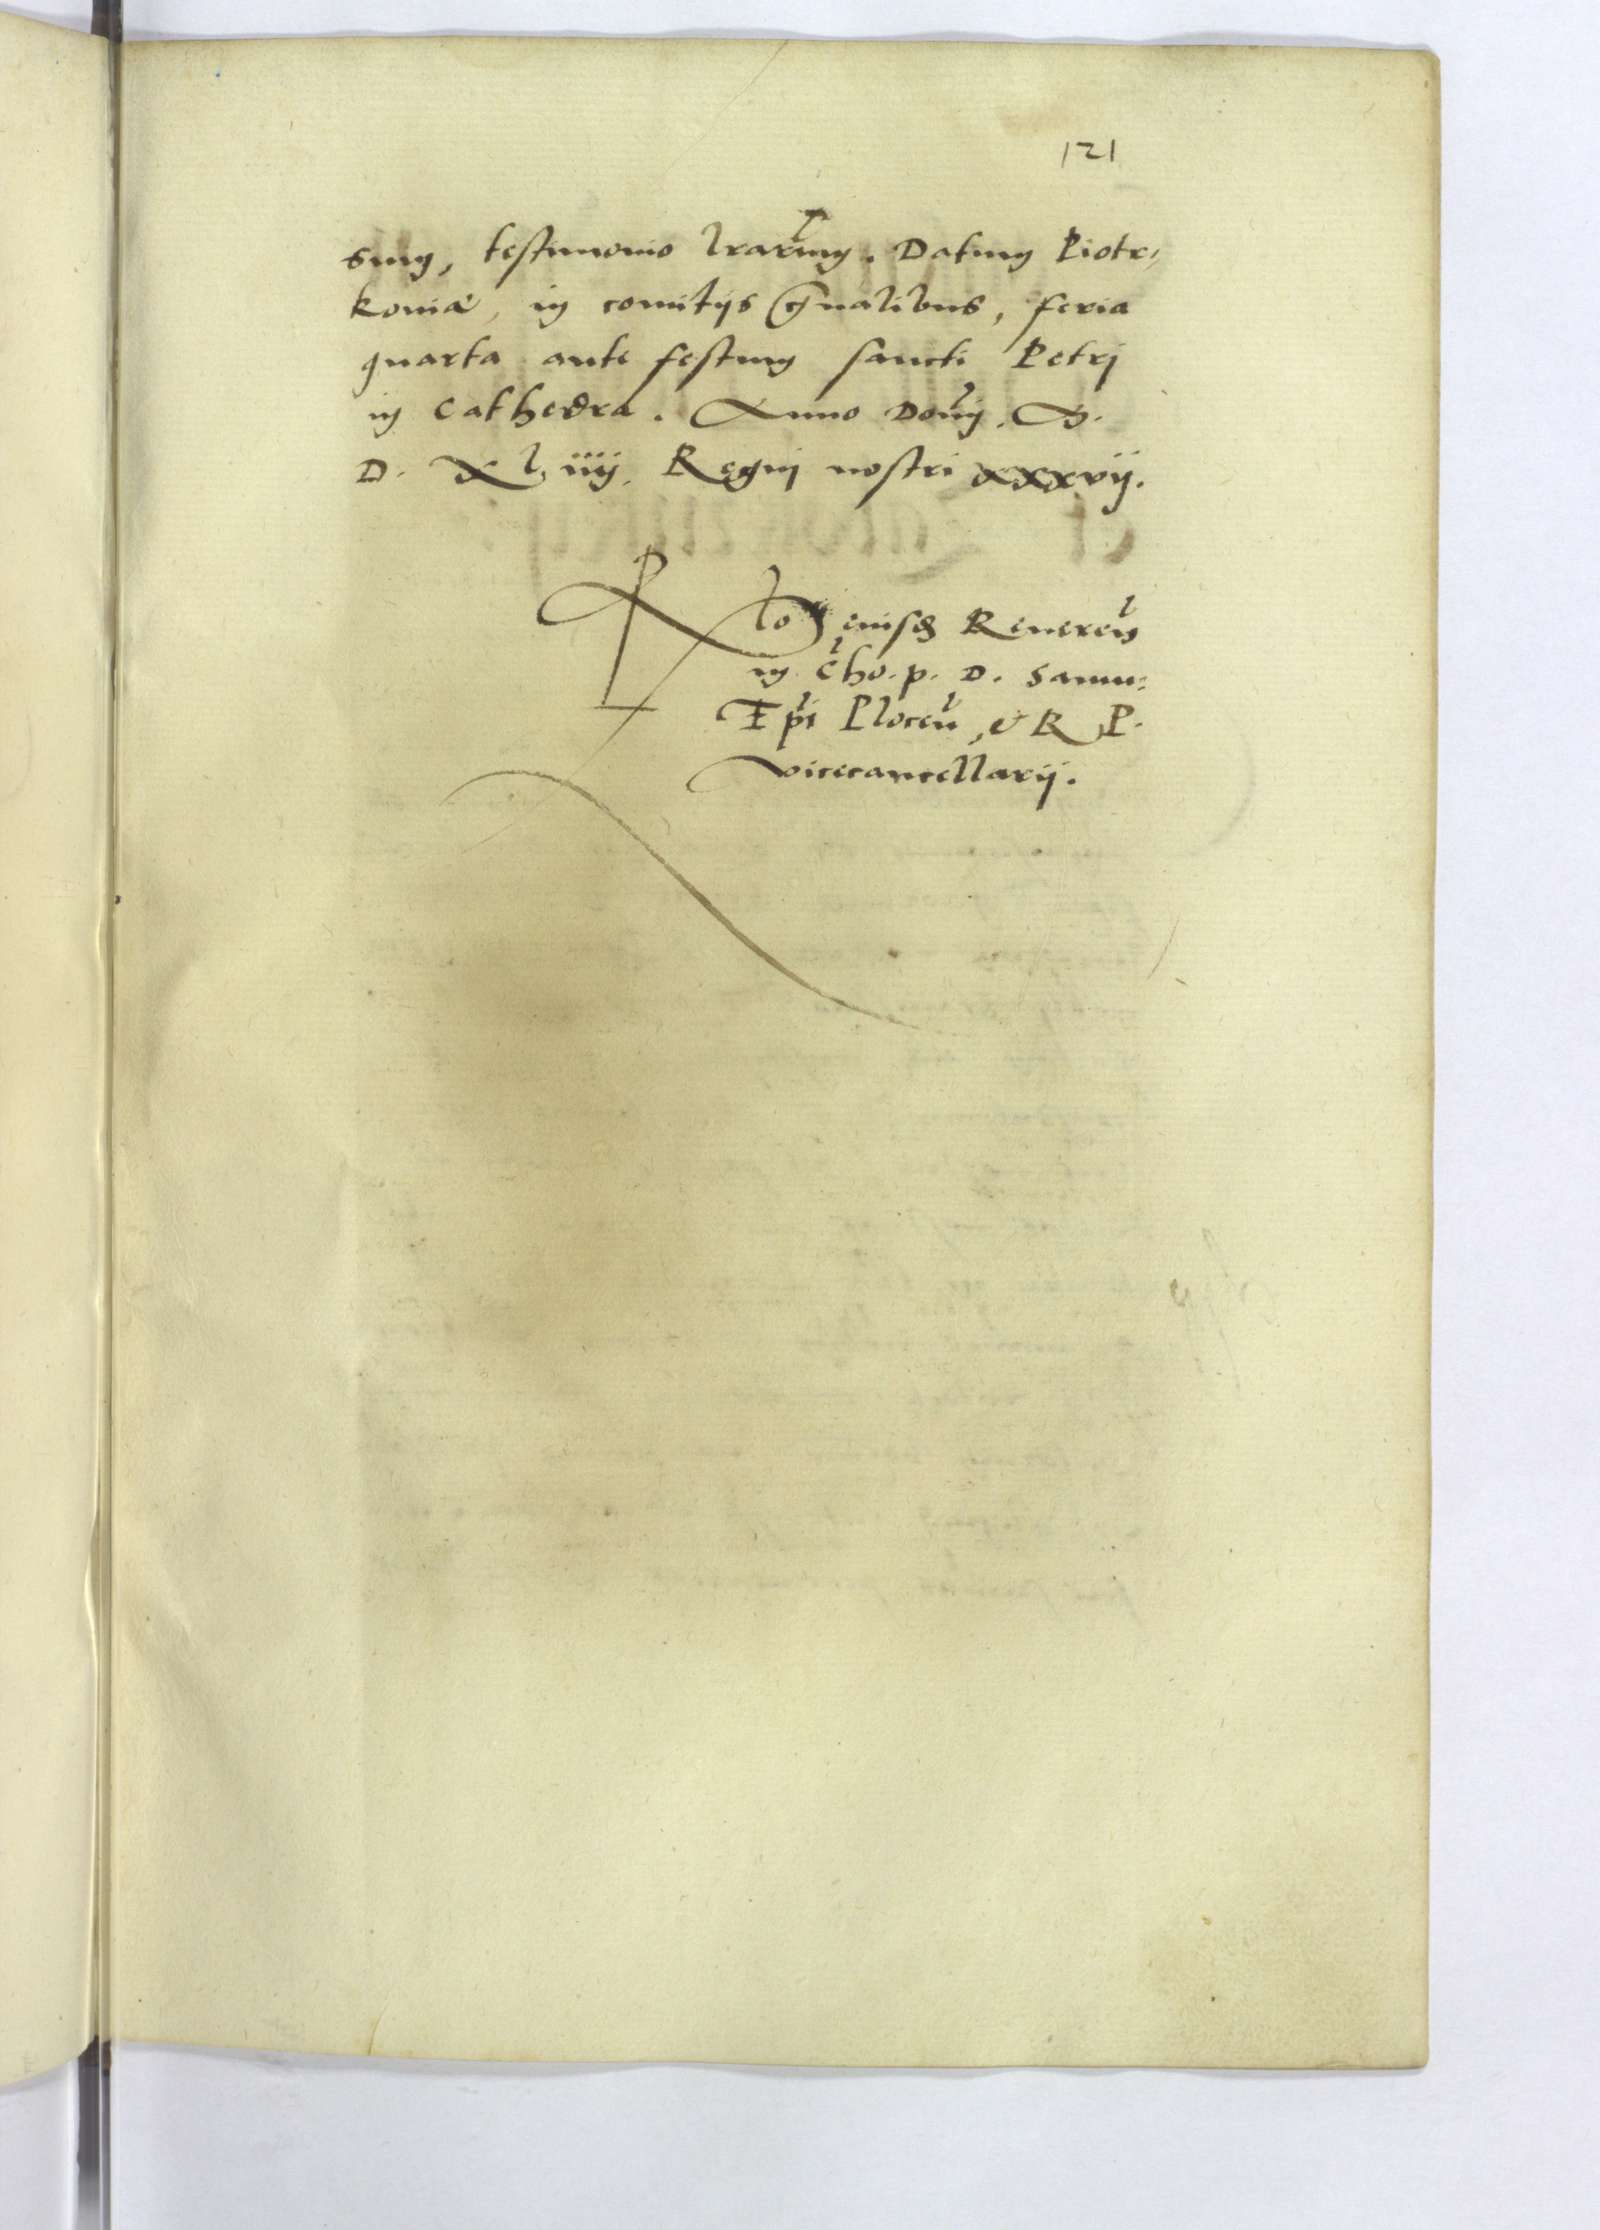 121
sum, testimonio lrarum. Datum Piotr,
koniæ, in comitijs gnalibus, feria
quarta ante festum sancti Petri
in Cathedra. Anno Domi. M.
D. Xl iiij. Regni nostri xxxvij.
Rlo eiusd Reueren
in Cho. p. D. Samu:
Epi Plocen, & R P.
vicecancellarij.